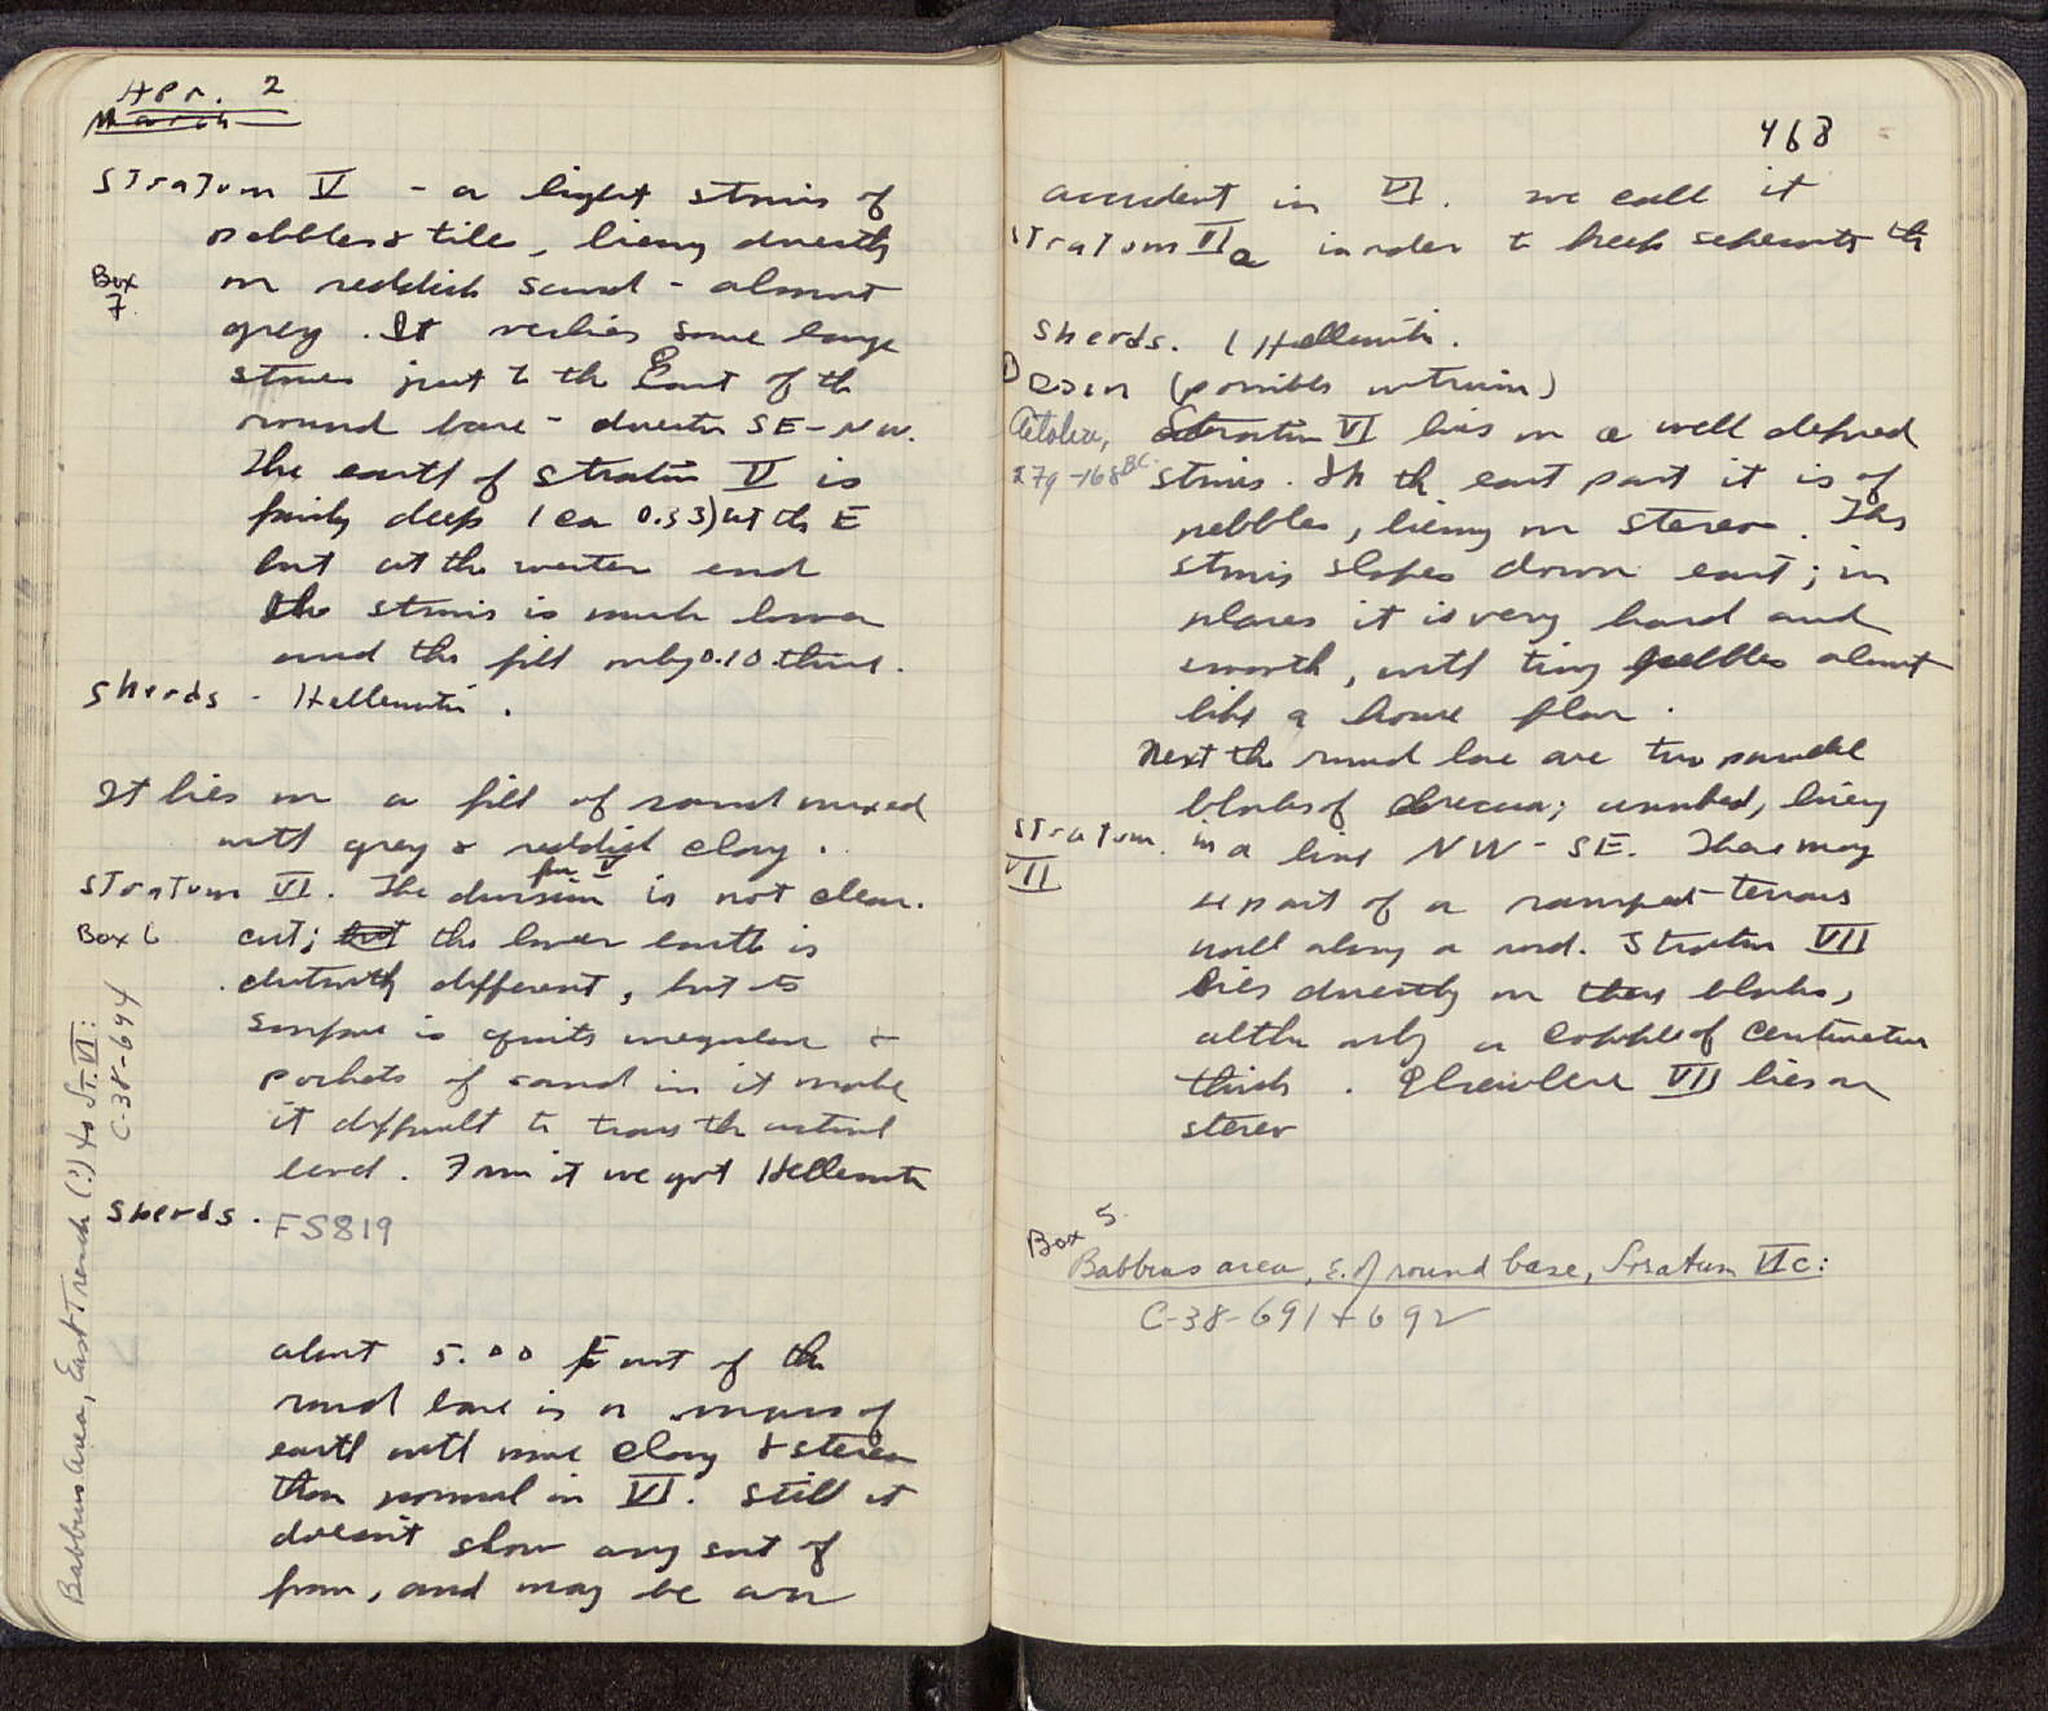 Apr. 2
March
Stratum V - a light stosis of
pebbles & tile, lieing directly
Box
7.
on reddish sand - almost
grey. It overlies some large
stones just to the East of the
round base - direction SE-NW.
The earth of stratum V is
fairly deep (ca 0.33) at the E
but at the western end
the strosis is much lower
and the fill only 0.10 thick.
Sherds - Hellenistic.
It lies on a fill of sand mixed
with grey & reddish clay.
from V
Stratum VI. The division is not clear.
Box 6
cut; but the lower earth is
distinctly different, but its
surface is quite irregular &
pockets of sand in it make
it difficult to trace the actual
level. From it we got Hellenistic
sherds. FS819
Babbius Area, East Trench (?) to St. VI:
C-38-694
about 5.00 East of the
round base is a mass of
earth with more clay & stereo
than normal in VI. Still it
doesn't show any sort of
form, and may be an
468
accident in VI. we call it
Stratum VIa in order to keep separate the
sherds. (Hellenistic.
① coin (possible intrusion)
Aitolia,
279-168 BC.
Stratum VI lies on a well defined
strosis. In the east part it is of
pebbles, lieing on stereo. This
strosis slopes down east; in
places it is very hard and
smooth, with tiny pebbles almost
like a house floor.
Next the round base are two parallel
blocks of breccia; unworked, lieing
Stratum
VII
in a line NW - SE. These may
be part of a terrace
wall along a road. Stratum VII
lies directly on these blocks,
altho only a couple of centimeters
thick. Elsewhere VII lies on
stereo
Box 5.
Babbius area, E. of round base, Stratum VIc:
C-38-691 + 692